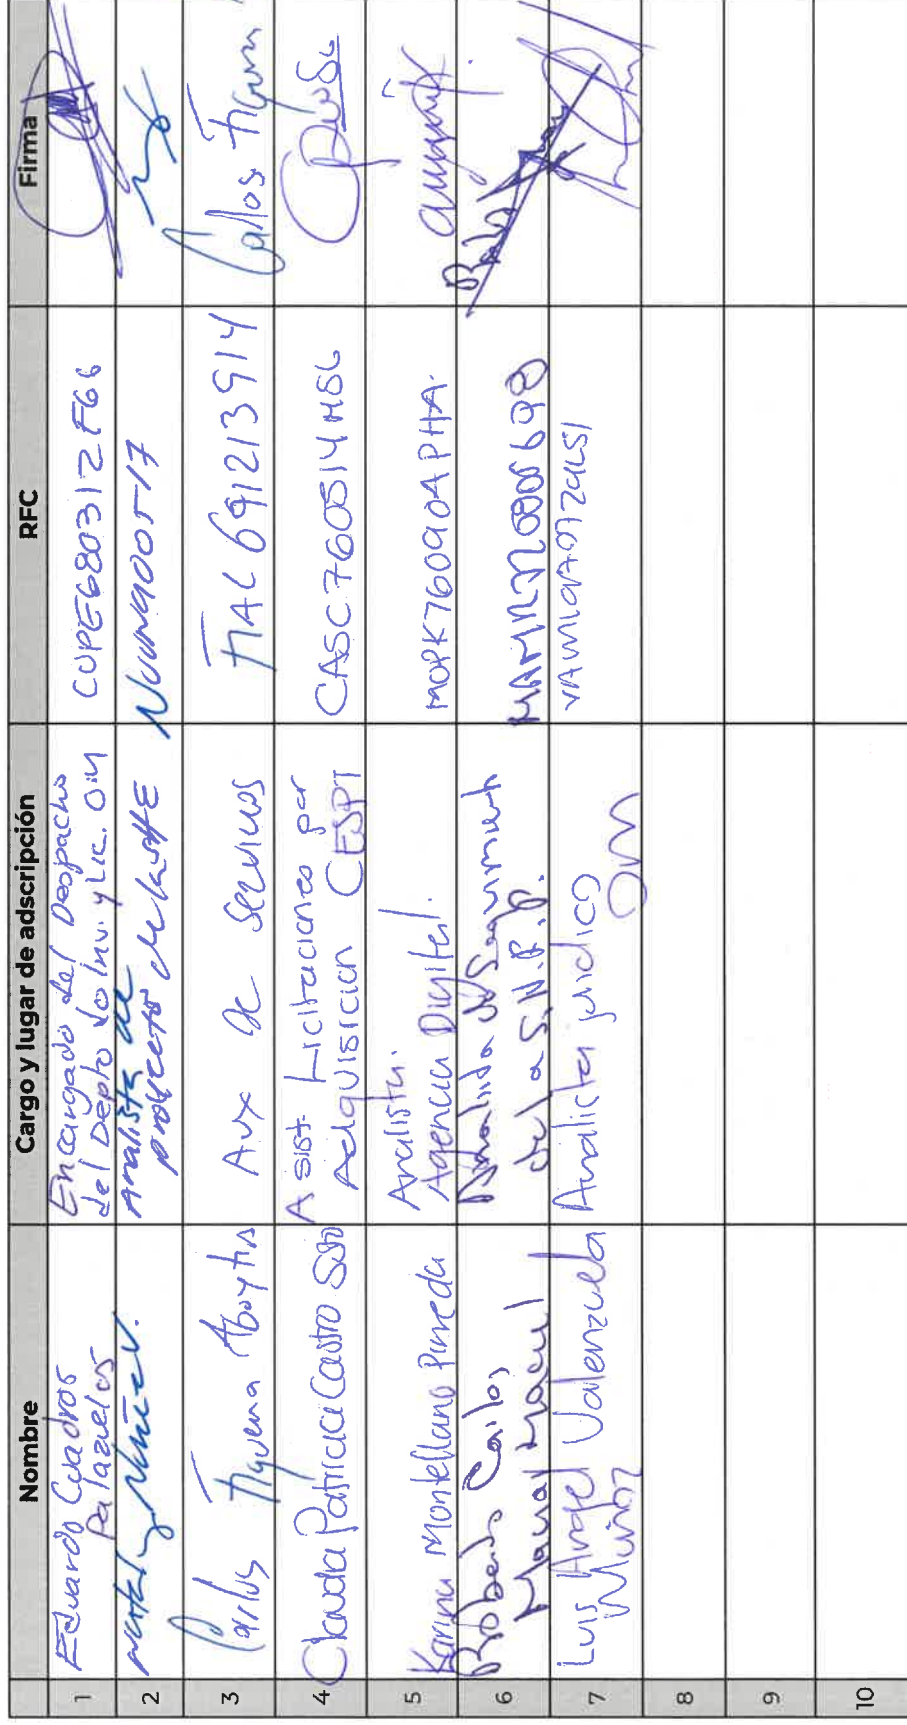 Nombre Cargo y lugar de adscripción RFC Firma
1 Eduardo Cuadros Palazuelos
Encargado del Despacho
del Depto de Inv. y Lic. OM
CUPE680312F66
2 Nataly Núñez V.
Analista de
proyectos
NUVN900517
3 Carlos Figueroa Aboytis
Aux de Servicios
FIAC691213914
Carlos Figueroa
4 Claudia Patricia Castro Soto
Asist Licitaciones por
Adquisicion CESPT
CASC760514HS6
5 Karina Montellano Pineda
Analista.
Agencia Digital.
MOPK760904PHA.
6 Roberto Carlos
de Seguimiento
de la S.N.P.
7 Luis Angel Valenzuela
Muñoz
Analista juridico
OM
8
9
10